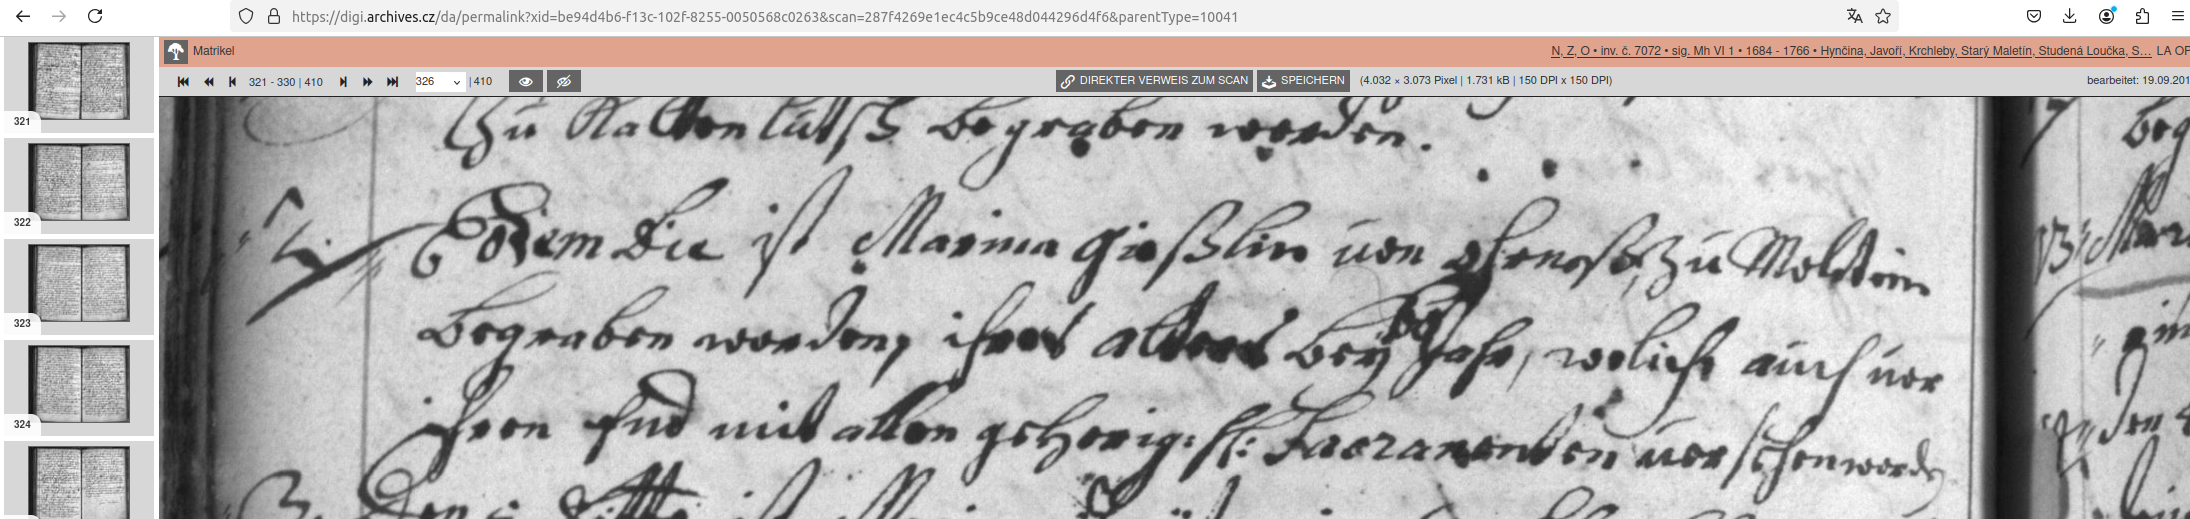 https://digi.archives.cz/da/permalink?xid=be94d4b6-f13c-102f-8255-0050568c0263&scan=287f4269e1ec4c5b9ce48d044296d4f6&parentType=10041
Matrikel
N, Z, O • inv. č. 7072 • sig. Mh VI 1 • 1684 - 1766 • Hynčina, Javoří, Krchleby, Starý Maletín, Studená Loučka, S… LA OP
321 - 330 | 410
326
| 410
DIREKTER VERWEIS ZUM SCAN
SPEICHERN
(4.032 × 3.073 Pixel | 1.731 kB | 150 DPI x 150 DPI)
bearbeitet: 19.09.201
321
322
323
324
Zu Kaltenlutsch begraben worden.
Eodem Die ist Marina von Zu Moletein
begraben worden, ihres alters bey Jahr, welche auch vor
ihren End mit allen gehörig: h: Sacramenten versehen worden